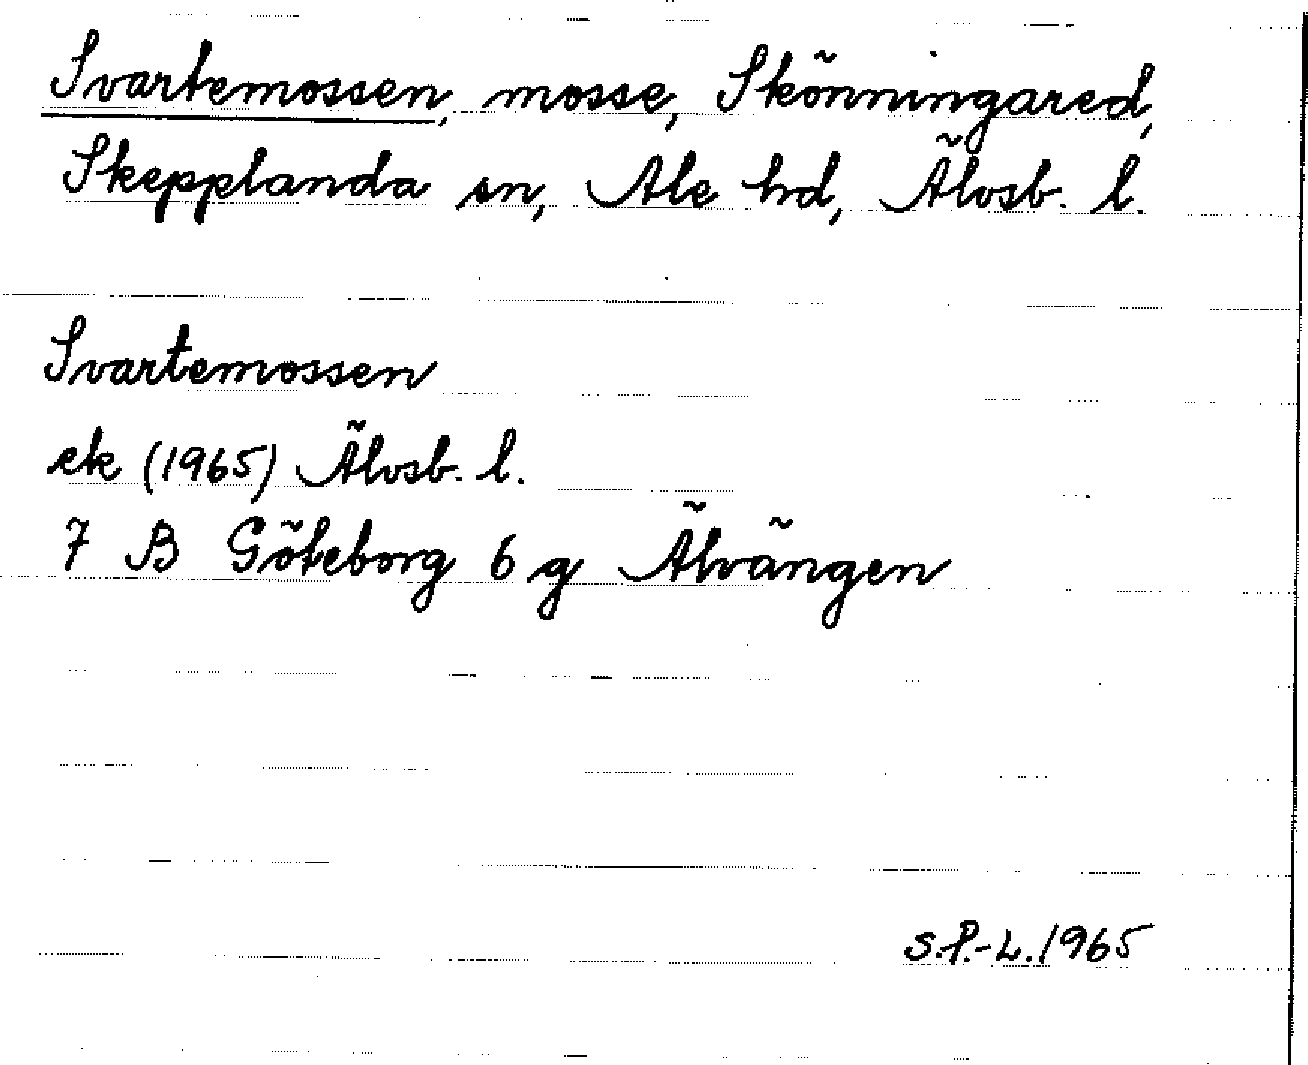 Svartemossen, mosse, Skönningared,
Skepplanda sn, Ale hd, Älvsb. l.
Svartemossen
ek (1965) Älvsb. l.
7 B Göteborg 6 g Älvängen
S.P.-L. 1965